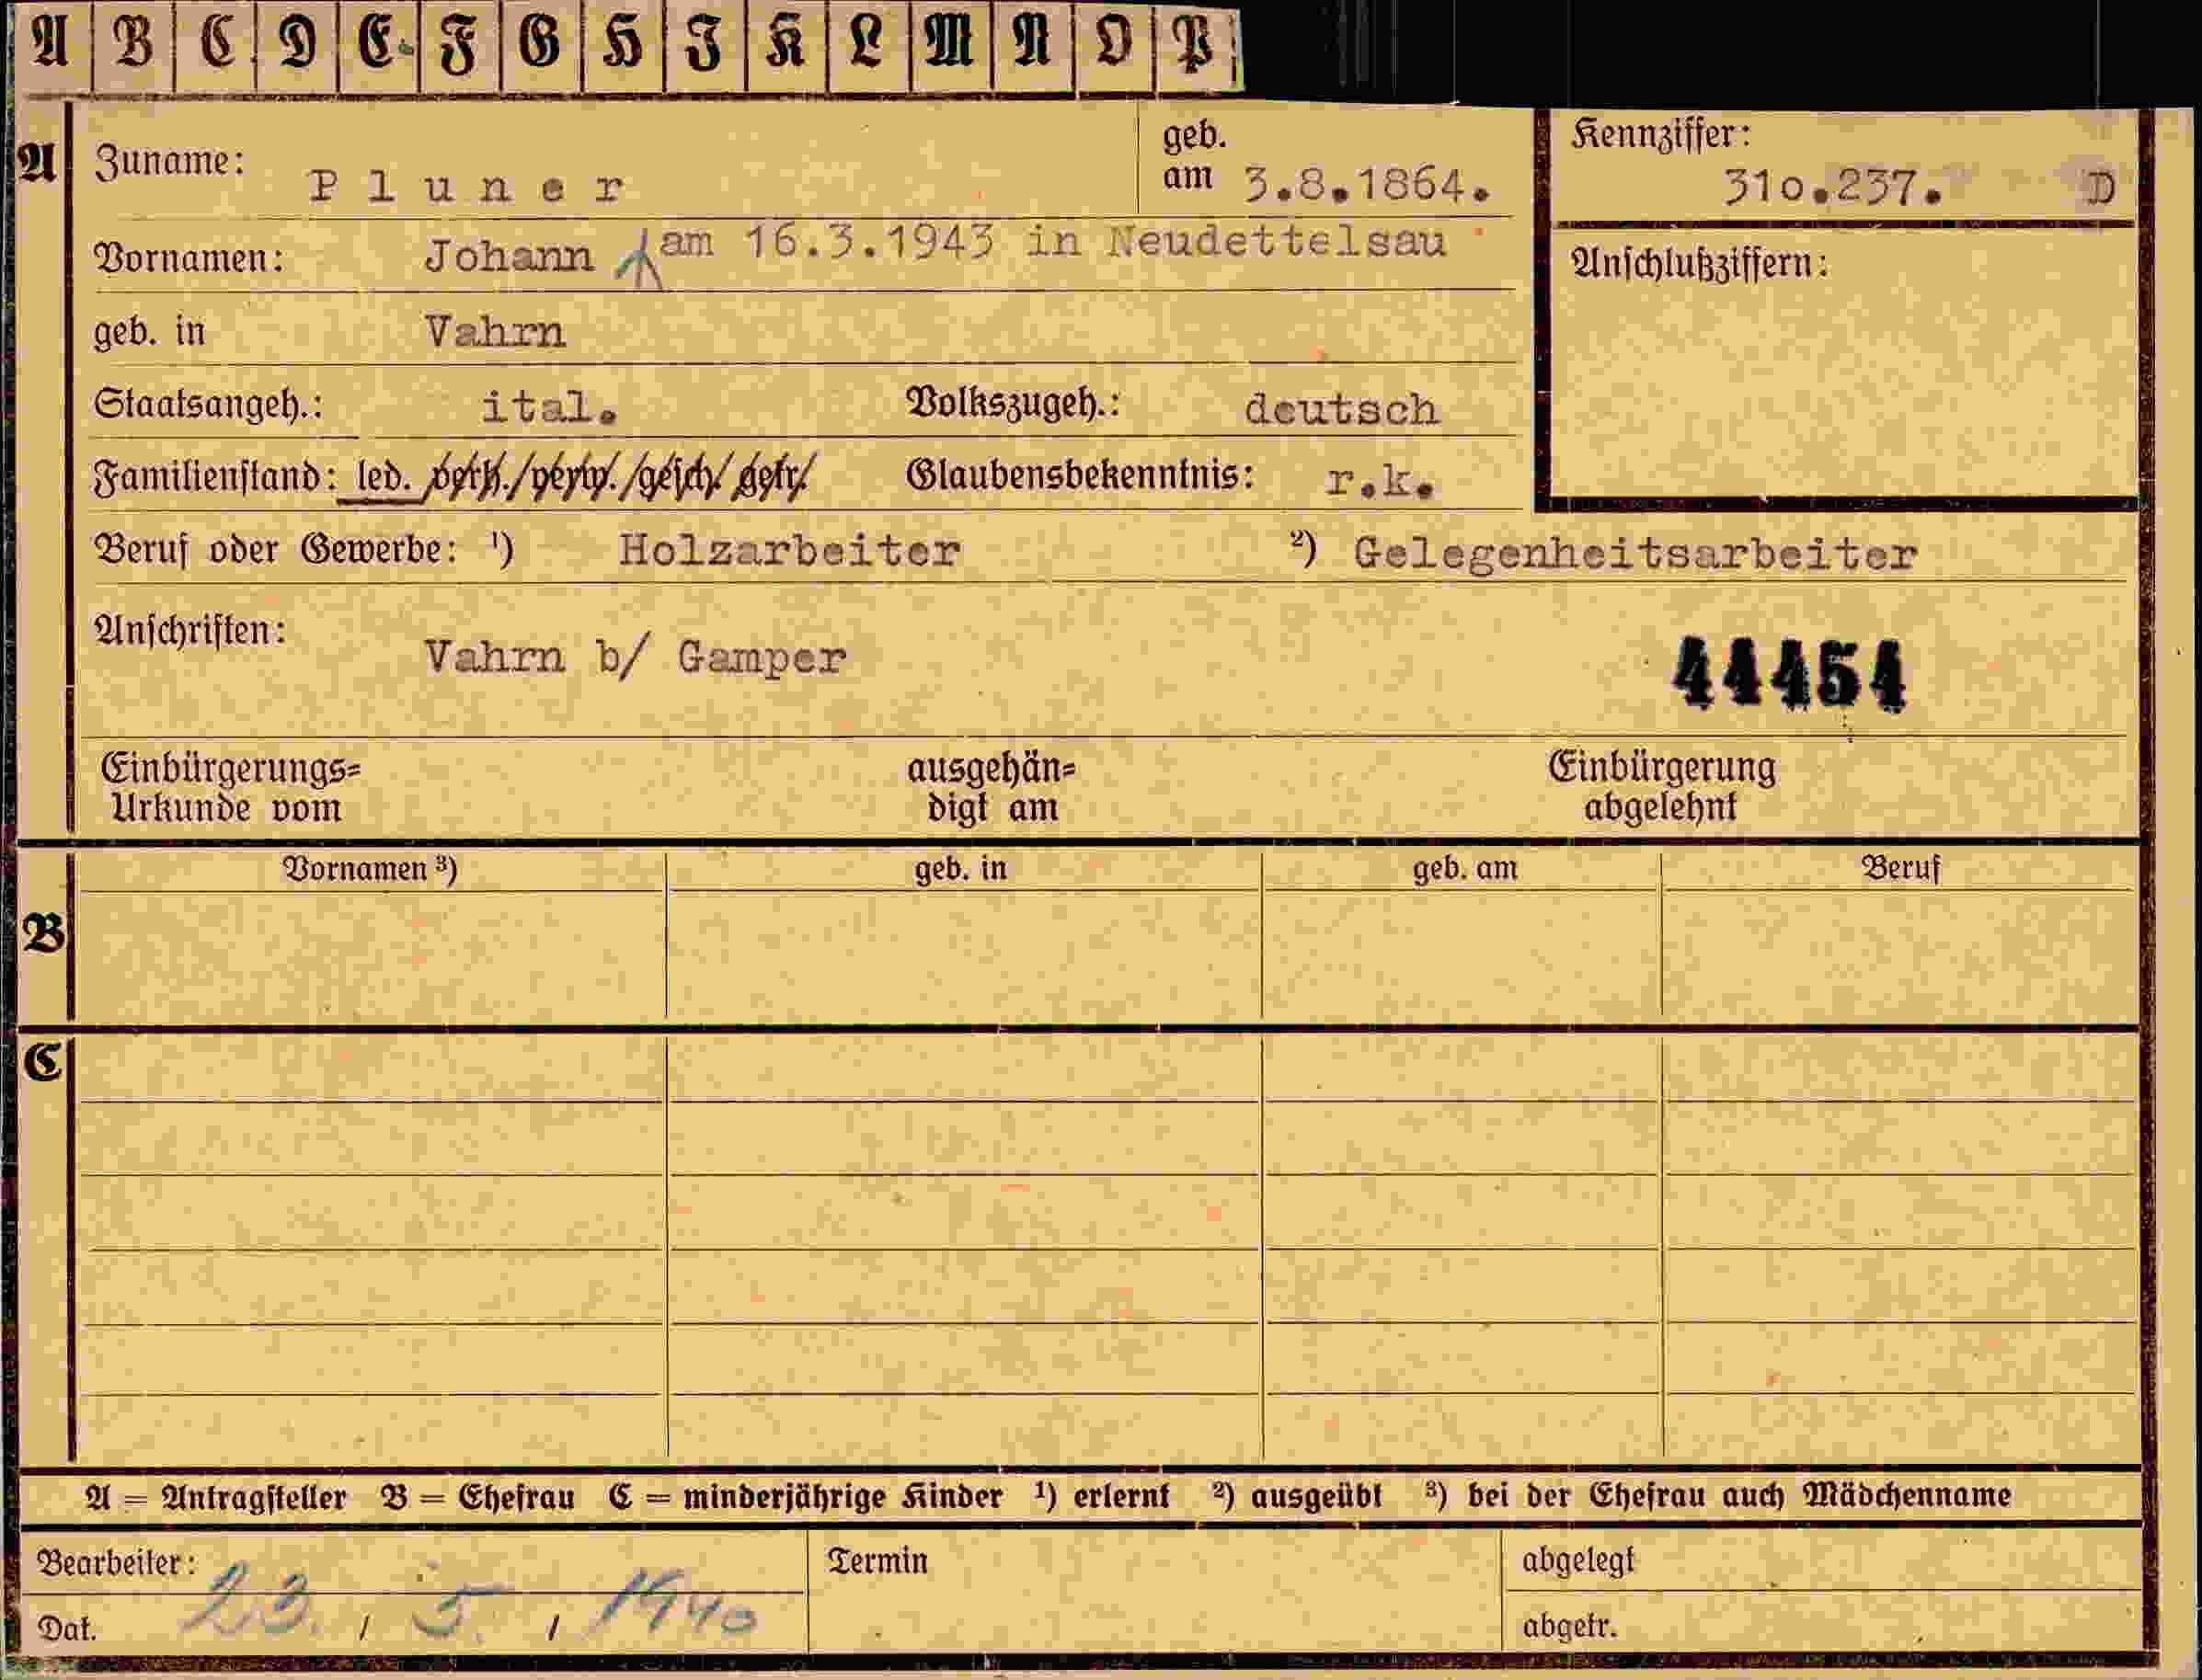 A B C D E F G H I K L M N O P
A Zuname: Pluner geb. am 3.8.1864. Kennziffer: 31o.237. D
Vornamen: Johann am 16.3.1943 in Neudettelsau Anschlußziffern:
geb. in Vahrn
Staatsangeh.: ital. Volkszugeh.: deutsch
Familienstand: led. verh./verw./gesch/ getr/ Glaubensbekenntnis: r.k.
Beruf oder Gewerbe: ¹) Holzarbeiter ²) Gelegenheitsarbeiter
Anschriften: Vahrn b/ Gamper 44454
Einbürgerungs= ausgehän= Einbürgerung
Urkunde vom digt am abgelehnt
Vornamen ³) geb. in geb. am Beruf
B
C
A = Antragsteller B = Ehefrau C = minderjährige Kinder ¹) erlernt ²) ausgeübt ³) bei der Ehefrau auch Mädchenname
Bearbeiter: Termin abgelegt
Dat. 23. / 5. / 1940 abgetr.